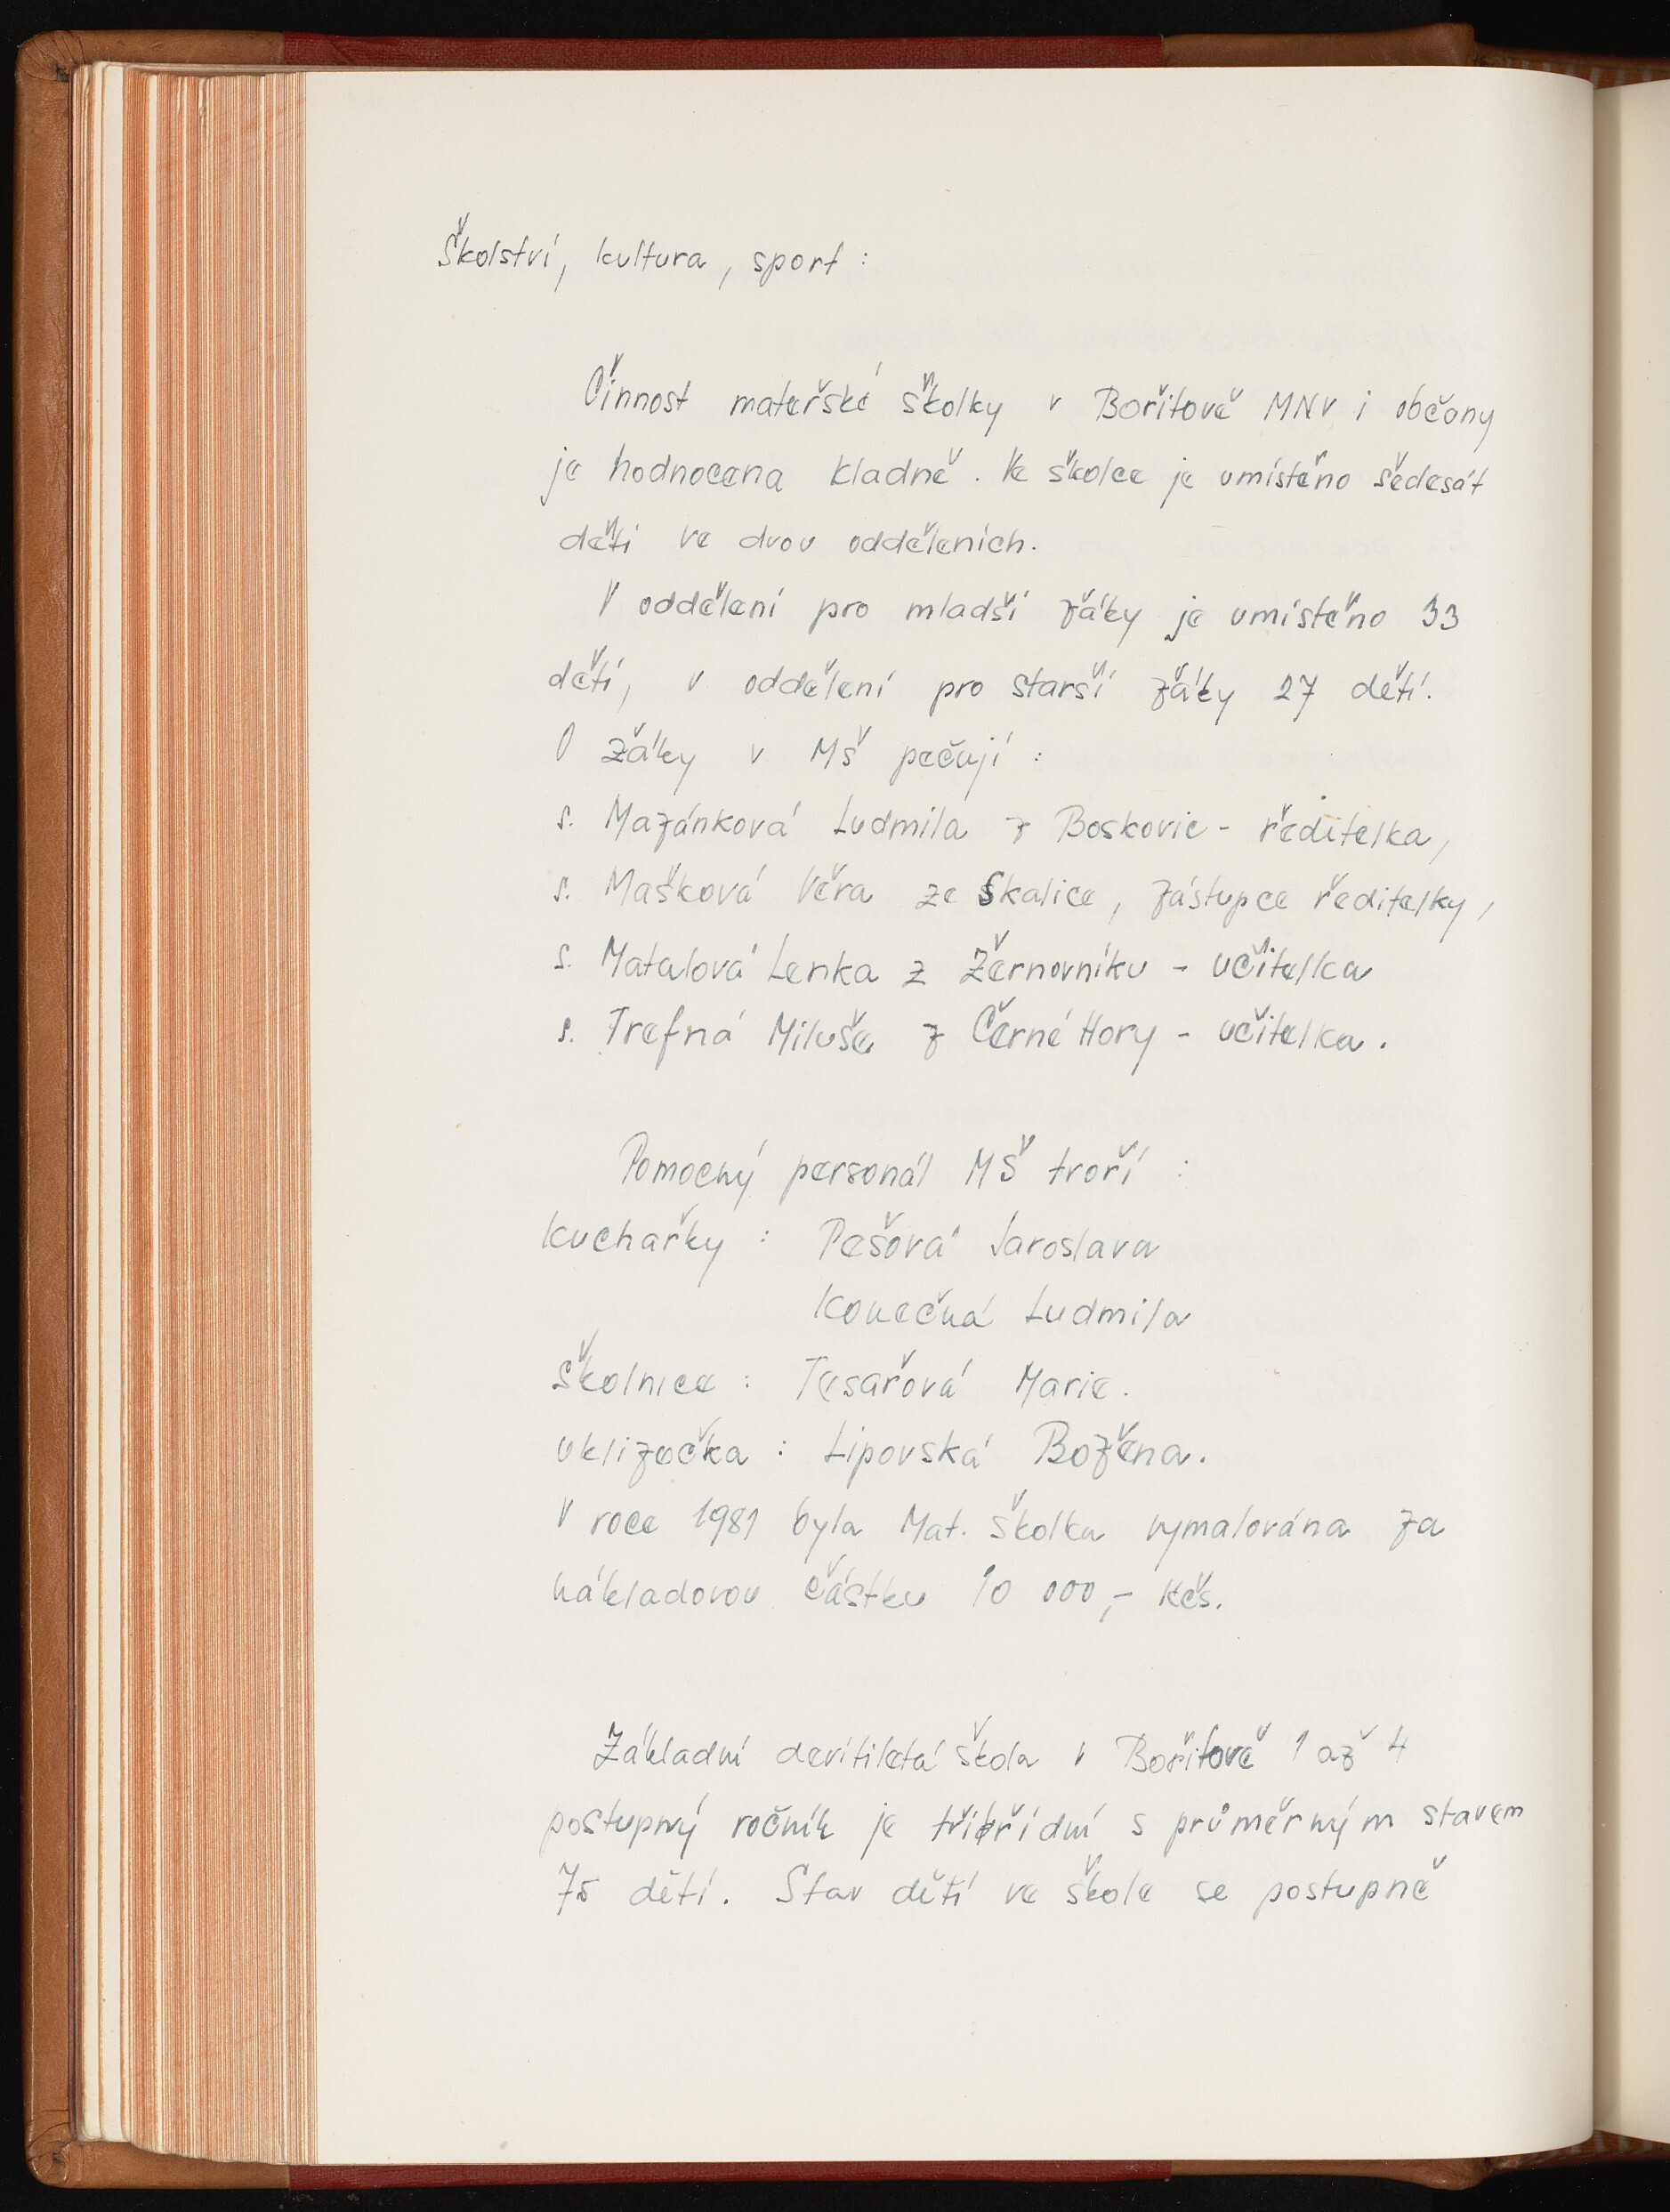 Školství, kultura, sport :
Činnost mateřské školky v Bořitově MNV i občany
je hodnocena kladně. Ve školce je umístěno šedesát
dětí ve dvou odděleních.
V oddělení pro mladší žáky je umístěno 33
dětí, v oddělení pro starší žáky 27 dětí.
O žáky v MŠ pečují :
s. Mazánková Ludmila z Boskovic - ředitelka,
s. Mašková Věra ze Skalice, zástupce ředitelky,
s. Matalová Lenka z Žernovníku - učitelka
s. Trefná Miluše z Černé Hory - učitelka.
Pomocný personál MŠ tvoří :
kuchařky : Pešová Jaroslava
Konečná Ludmila
školnice : Tesařová Marie.
uklizečka : Lipovská Božena.
V roce 1981 byla Mat. školka vymalována za
nákladovou částku 10 000,- Kčs.
Základní devítiletá škola v Bořitově 1 až 4
postupný ročník je třítřídní s průměrným stavem
75 dětí. Stav dětí ve škole se postupně